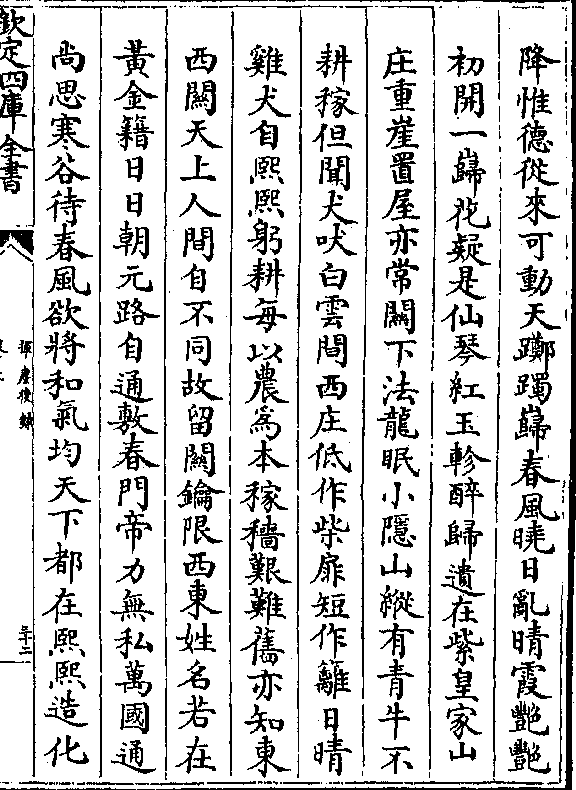 降惟德從來可動天躑躅巋春風曉日亂晴霞艷艷
初開一巋花疑是仙琴紅玉軫醉歸遺在紫皇家山
庄重崖置屋亦常關下法龍眠小隱山縱有青牛不
耕稼但聞犬吠白雲間西庄低作柴扉短作籬日晴
雞犬自熙熙躬耕每以農為本稼穡艱難舊亦知東
西關天上人間自不同故留關鑰限西東姓名若在
黃金籍日日朝元路自通敷春門帝力無私萬國通
尚思寒谷待春風欲將和氣均天下都在熙熙造化
欽定四庫全書
揮麈後錄